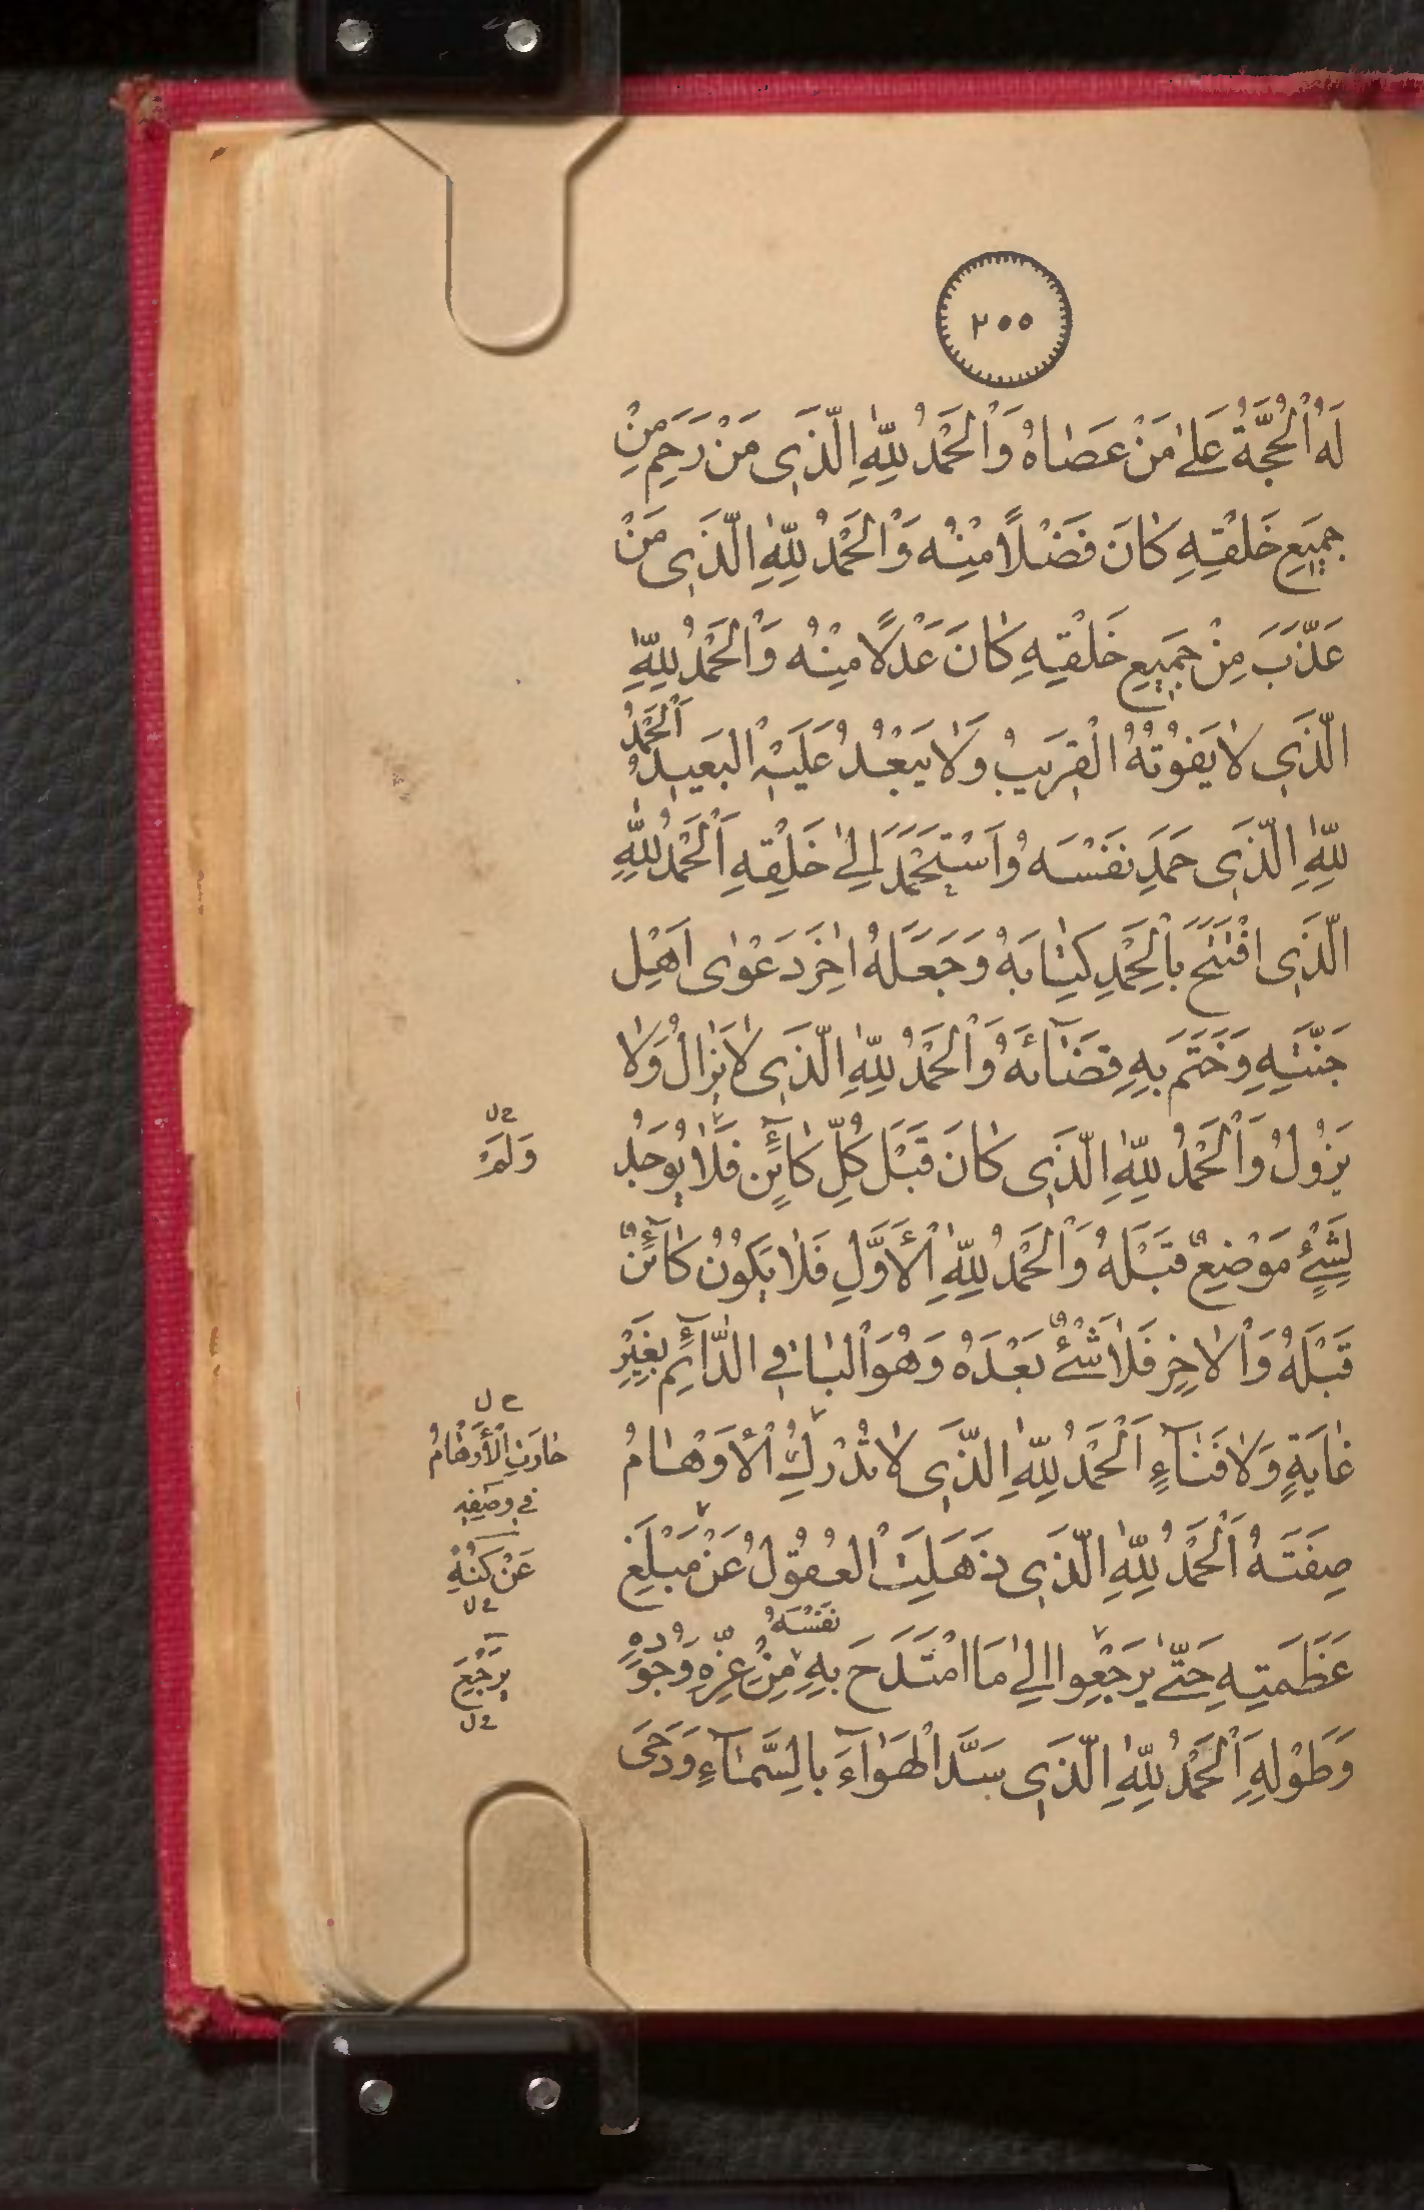 ٢٥٥
لَهُ الْحُجَّةُ عَلىٰ مَنْ عَصٰاهُ وَالْحَمْدُ لِلّٰهِ الَّذِى مَنْ رَحِمَ مِنْ
جَمِيعِ خَلْقِهِ كٰانَ فَضْلاً مِنْهُ وَالْحَمْدُ لِلّٰهِ الَّذِى مَنْ
عَذَّبَ مِنْ جَمِيعِ خَلْقِهِ كٰانَ عَدْلاً مِنْهُ وَالْحَمْدُ لِلّٰهِ
الَّذِى لاٰ يَفُوتُهُ الْقَرِيبُ وَلاٰ يَبْعُدُ عَلَيْهِ الْبَعِيدُ اَلْحَمْدُ
لِلّٰهِ الَّذِى حَمِدَ نَفْسَهُ وَاسْتَحْمَدَ اِلىٰ خَلْقِهِ اَلْحَمْدُ لِلّٰهِ
الَّذِى افْتَتَحَ بِالْحَمْدِ كِتٰابَهُ وَجَعَلَهُ اٰخِرَ دَعْوٰى اَهْلِ
جَنَّتِهِ وَخَتَمَ بِهِ قَضٰآئَهُ وَالْحَمْدُ لِلّٰهِ الَّذِى لاٰ يَزٰالُ وَلاٰ
يَزُولُ وَالْحَمْدُ لِلّٰهِ الَّذِى كٰانَ قَبْلَ كُلِّ كٰآئِنٍ فَلاٰ يُوجَدُ
وَلَمْ خ ل
لِشَيْءٍ مَوْضِعٌ قَبْلَهُ وَالْحَمْدُ لِلّٰهِ الْأَوَّلِ فَلاٰ يَكُونُ كٰآئِنٌ
قَبْلَهُ وَالْاٰخِرِ فَلاٰ شَيْءٌ بَعْدَهُ وَهُوَ الْبٰاقِى الدّٰآئِمُ بِغَيْرِ
غٰايَةٍ وَلاٰ فَنٰآءٍ اَلْحَمْدُ لِلّٰهِ الَّذِى لاٰ تُدْرِكُ الْأَوْهٰامُ
حٰارَتِ الْأَوْهٰامُ فِى وَصْفِهِ خ ل
صِفَتَهُ اَلْحَمْدُ لِلّٰهِ الَّذِى ذَهَلَتِ الْعُقُولُ عَنْ مَبْلَغِ
عَنْ كُنْهِ خ ل
عَظَمَتِهِ حَتّٰى يَرْجِعُوا اِلىٰ مَا امْتَدَحَ بِهِ نَفْسَهُ مِنْ عِزِّهِ وَجُودِهِ
يَرْجِعَ خ ل
وَطَوْلِهِ اَلْحَمْدُ لِلّٰهِ الَّذِى سَدَّ الْهَوٰآءَ بِالسَّمٰآءِ وَدَحَى